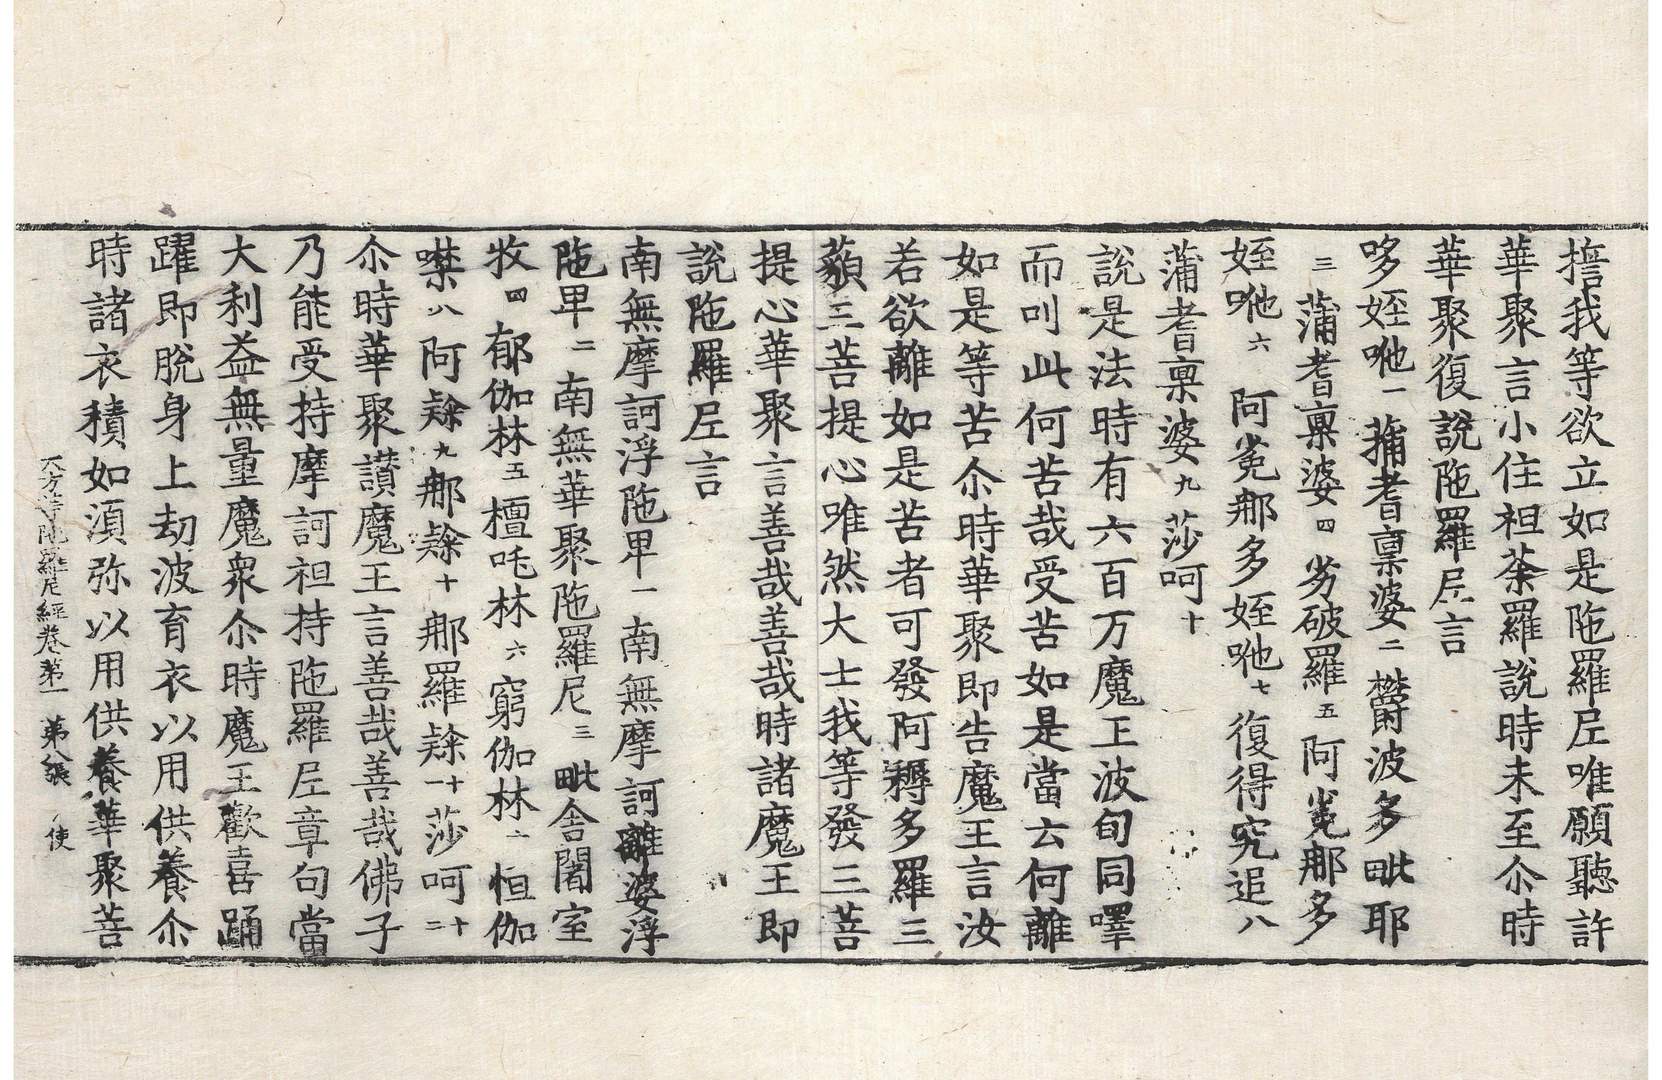 擔我等欲立如是陁羅尼唯願聽許
華聚言小住袒荼羅說時未至尒時
華聚復說陁羅尼言
哆姪咃一蒱耆稟婆二欝波多毗耶
三蒲耆稟婆四劣破羅五阿㝹那多
姪咃六阿㝹那多姪咃七復得究追八
蒲耆稟婆九莎呵十
說是法時有六百万魔王波旬同嘷
而叫此何苦哉受苦如是當云何離
如是等苦尒時華聚即告魔王言汝
若欲離如是苦者可發阿耨多羅三
藐三菩提心唯然大士我等發三菩
提心華聚言善哉善哉時諸魔王即
說陁羅尼言
南無摩訶浮陁甲一南無摩訶離婆浮
陁甲二南無華聚陁羅尼三毗舍闍室
牧四郁伽林五檀吒林六窮伽林七恒伽
噤八阿𨽻九那𨽻十那羅𨽻十一莎呵十二
尒時華聚讃魔王言善哉善哉佛子
乃能受持摩訶袒持陁羅尼章句當
大利益無量魔衆尒時魔王歡喜踊
躍即脫身上劫波育衣以用供養尒
時諸衣積如湏弥以用供養華聚菩
大方等陁羅尼經卷第一 第八張 使